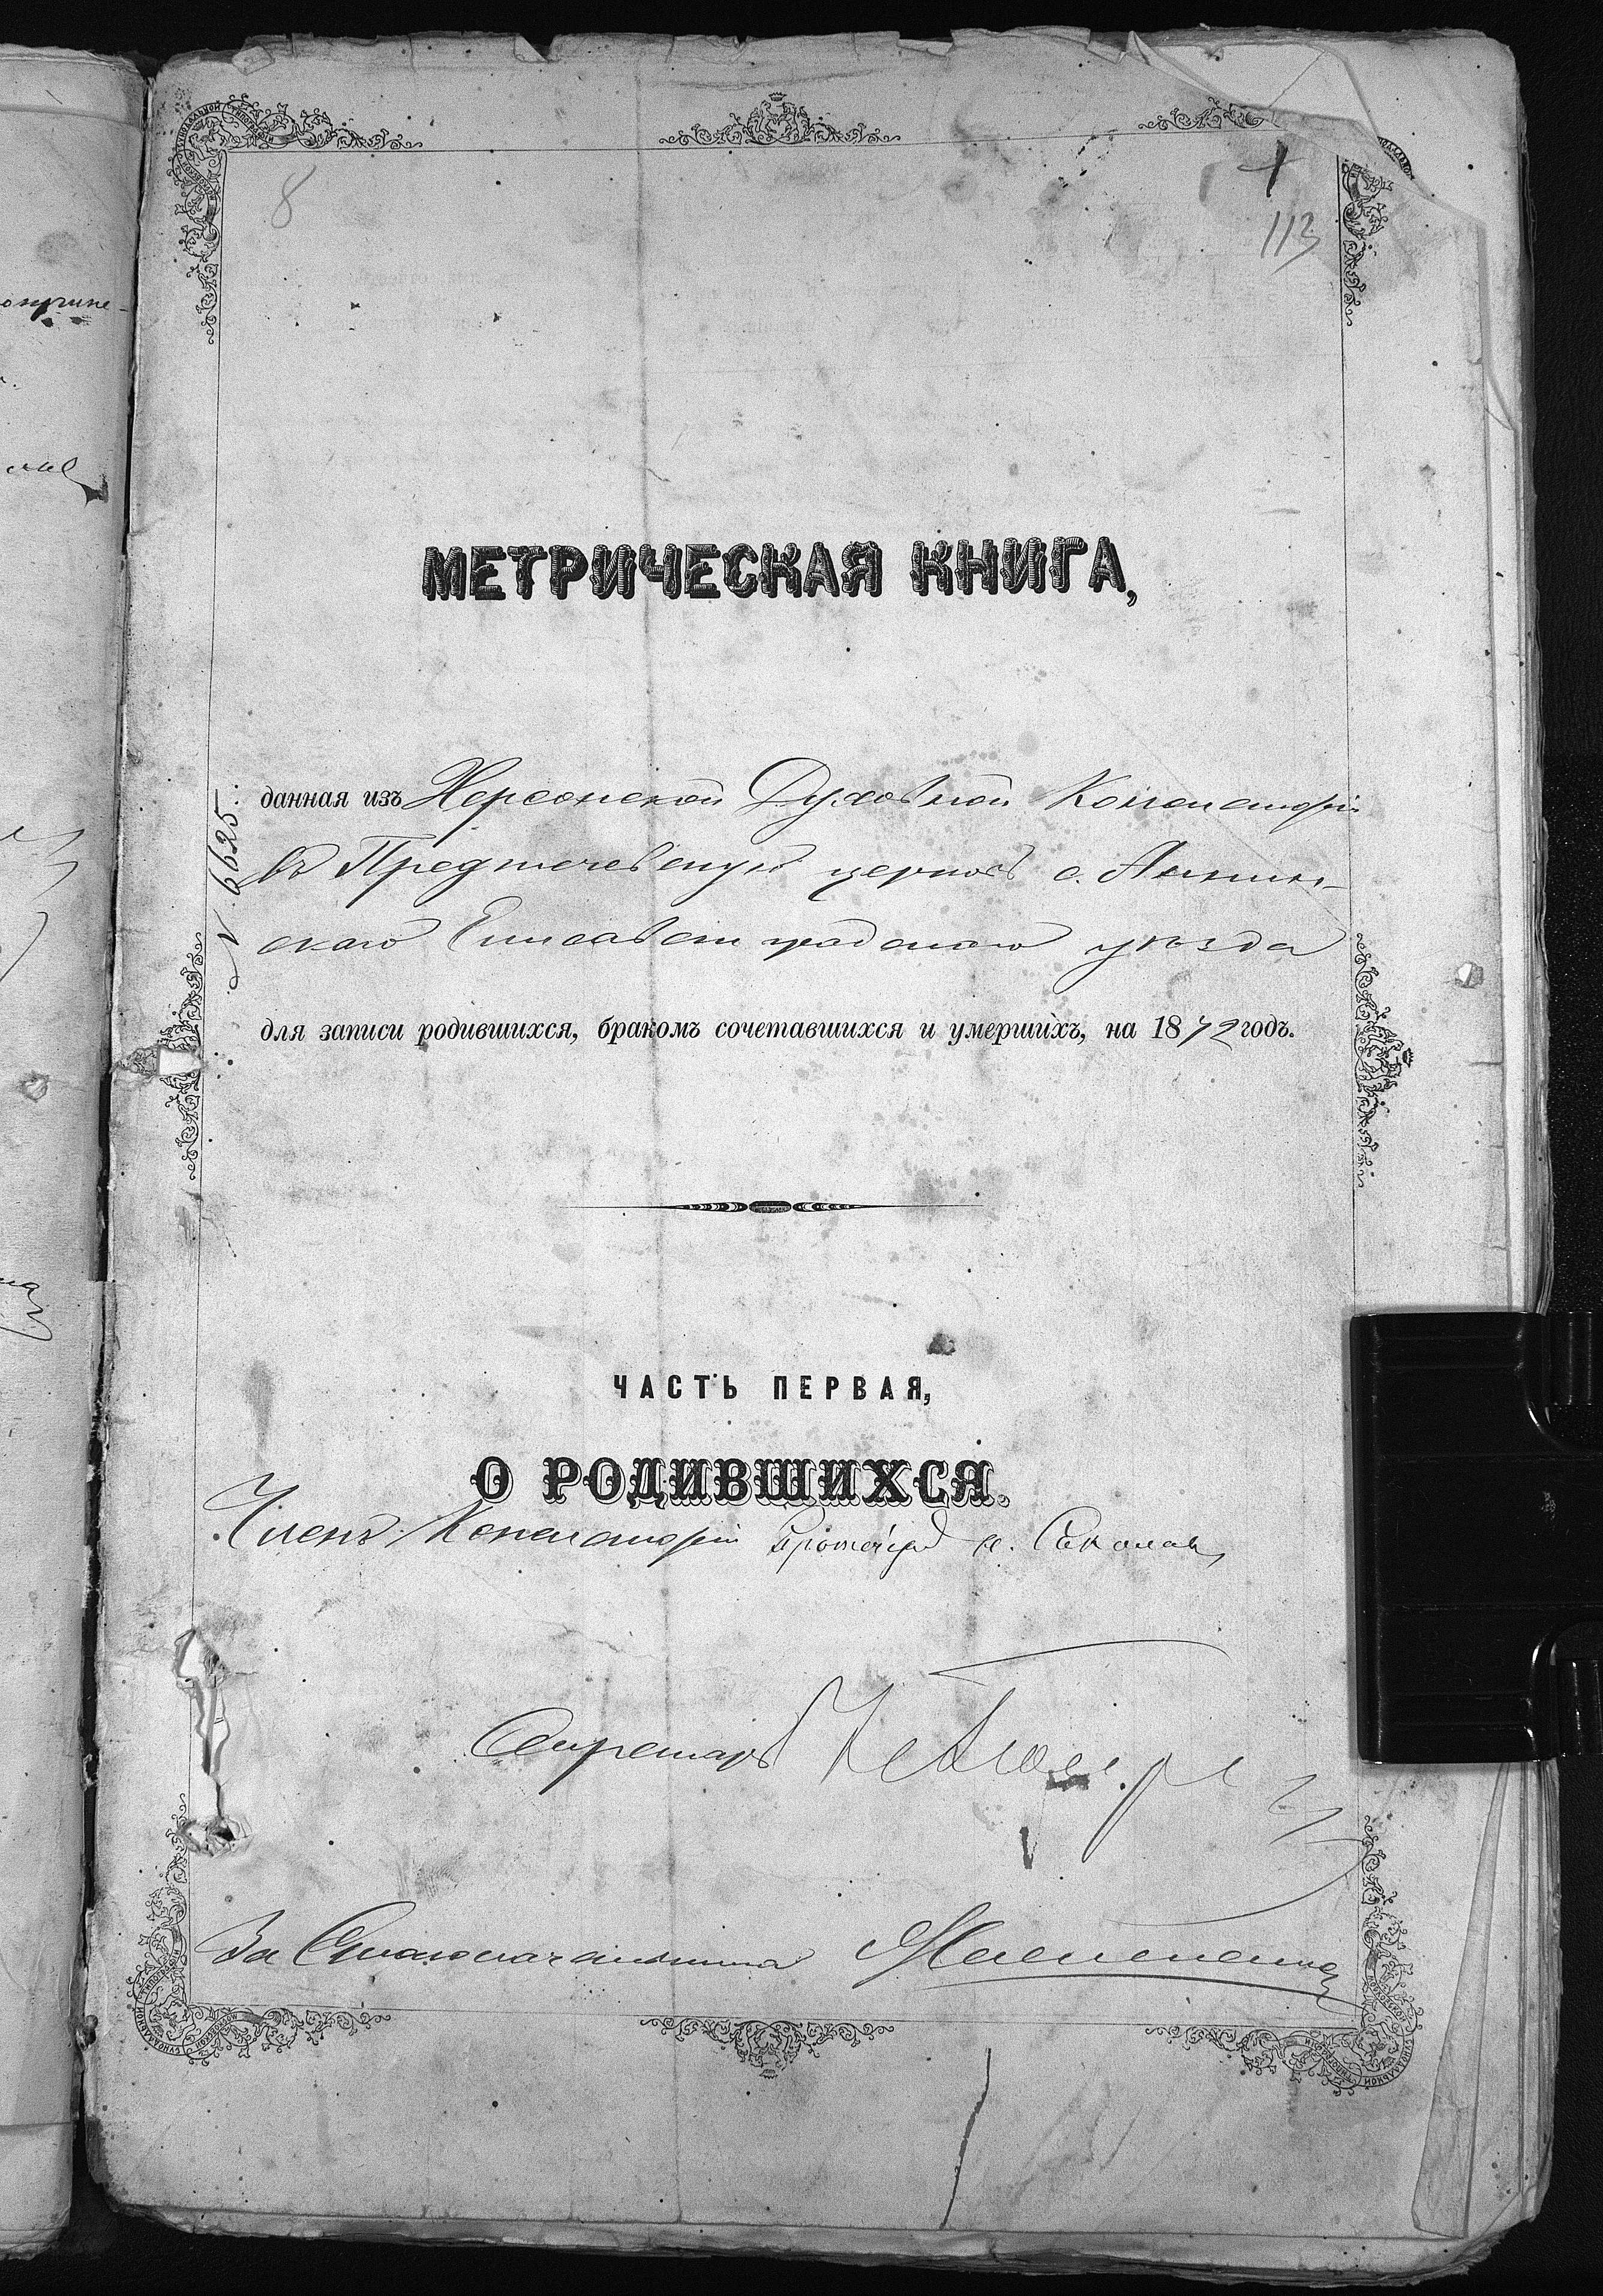 8
113
МЕТРИЧЕСКАЯ КНИГА,
№ 6625.
данная изъ Херсонской Духовной Консисторіи
въ Предтечевскую церковь с. Аннин-
скаго Елисаветградскаго уѣзда
для записи родившихся, бракомъ сочетавшихся и умершихъ, на 1872 годъ.
ЧАСТЬ ПЕРВАЯ,
О РОДИВШИХСЯ.
Членъ Консисторіи Протоіерей
Секретарь
За Столоначальника